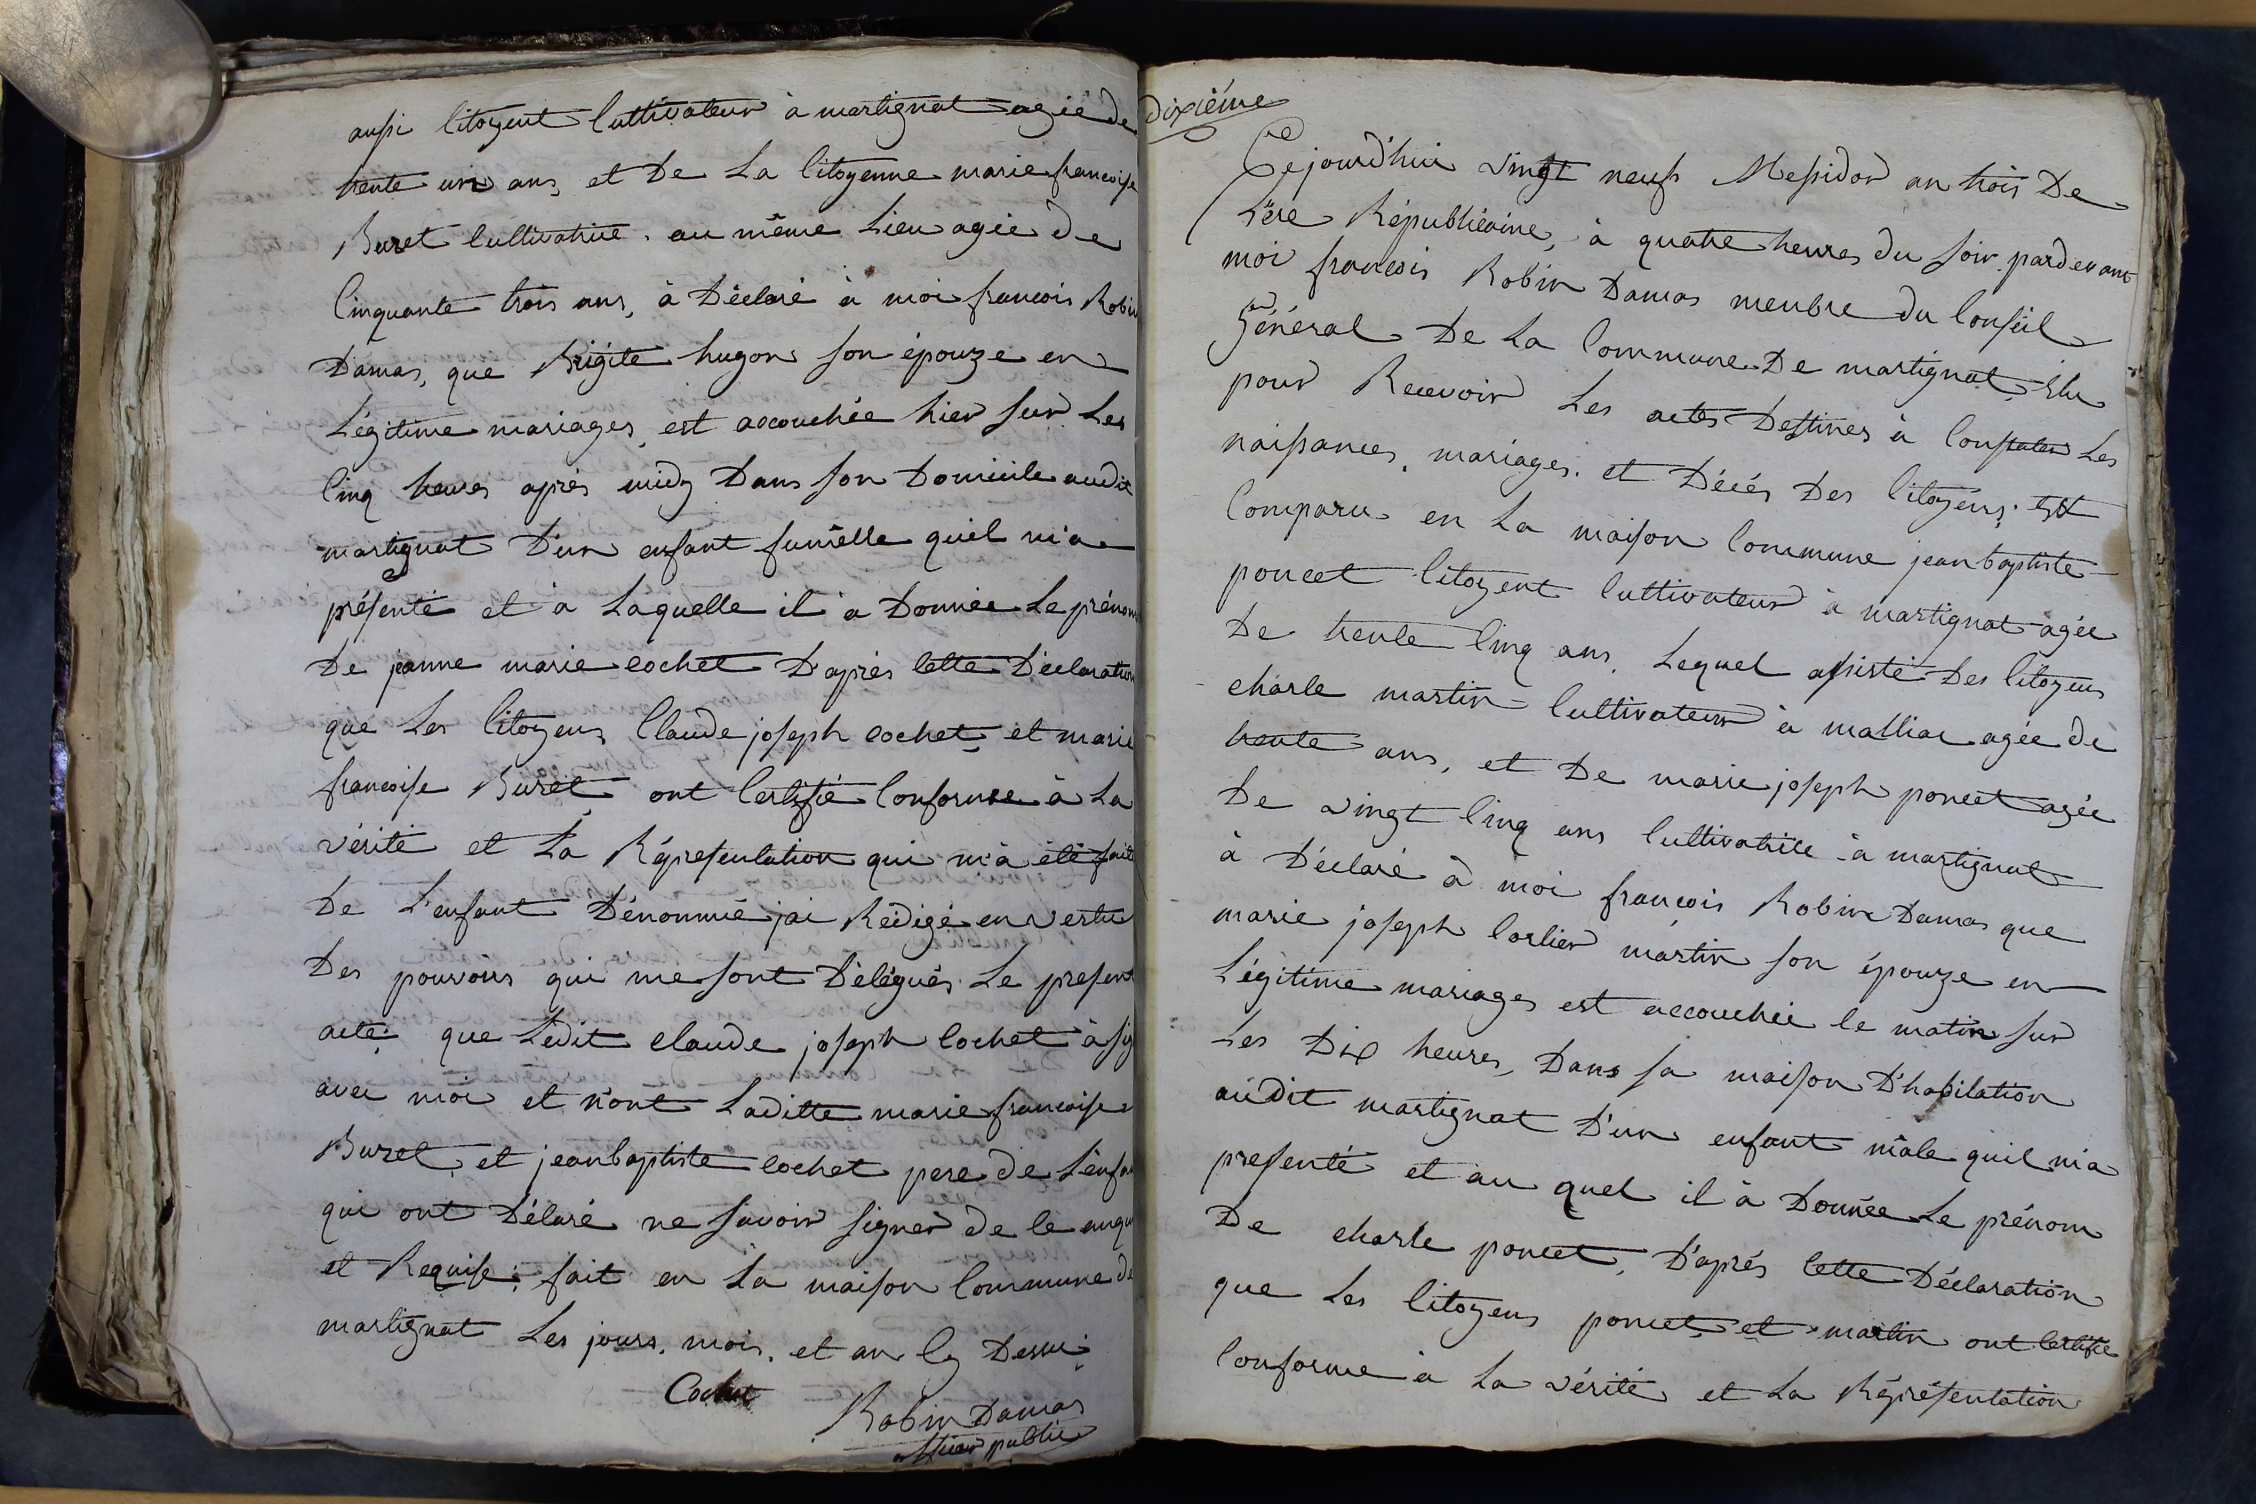 aussi Citoyent Cultivateur à martignat agée de
trente un ans, et De La Citoyenne marie francoise
Buret Cultivatrice. au même Lieu agée De
Cinquante trois ans, à Déclaré à moi francois Robin
Damas, que Brigite hugon son épouze en
Légitime mariages, est accouchée hier sur Les
Cinq heures après midy Dans son Domicile audit
martignat D'un enfant fumêlle quil m'a
présenté et à Laquelle il à Donnée Le prénom
De jeanne marie cochet D'après Cette Déclaration
que Les Citoyens Claude joseph cochet, et marie
francoise Buret ont Certifié Conforme à La
vérité et La Répresentation qui m'a été faite
De L'enfant Dénommé jai Rédigé en vertu
Des pouvoirs qui me sont Délégués Le present
acte; que Ledit claude joseph Cochet à sig
avec moi et n'ont Laditte marie francoise
Buret et jean baptiste cochet pere de L'enfan
qui ont Délaré ne savoir signer de ce enqu
et Requise; fait en La maison Commune de
martignat Les jours, mois, et an Cy Dessu
Cochet
Robin Damas
officier public
Dixiéme
Cejourd'hui vingt neuf Messidor an trois De
L'ère Républicaine, à quatre heures du soir pardevant
moi francois Robin Damas menbre du Conseil
Général De La Commune De martignat Elu
pour Recevoir Les actes Destines à Constater Les
naissances, mariages. et Décés Des Citoyéns; Est
Comparu en La maison Commune jean baptiste
poncet Citoyent Cultivateur à martignat agée
De trente Cinq ans, Lequel assisté Des Citoyens
charle martin Cultivateur à malliac agée de
trente ans, et De marie joseph poncet agée
De vingt Cinq ans Cultivatrice à martignat
à Déclaré à moi francois Robin Damas que
marie joseph Corlier martin son épouze en
Légitime mariages est accouchée le matin sur
Les Dix heures, Dans sa maison D'habitation
audit martignat D'un enfant mâle quil m'a
presenté et au quel il à Donnée Le prénom
De charle poncet, D'aprés Cette Déclaration
que Les Citoyens poncet, et martin ont Certifié
Conforme à La vérité et La Répresentation